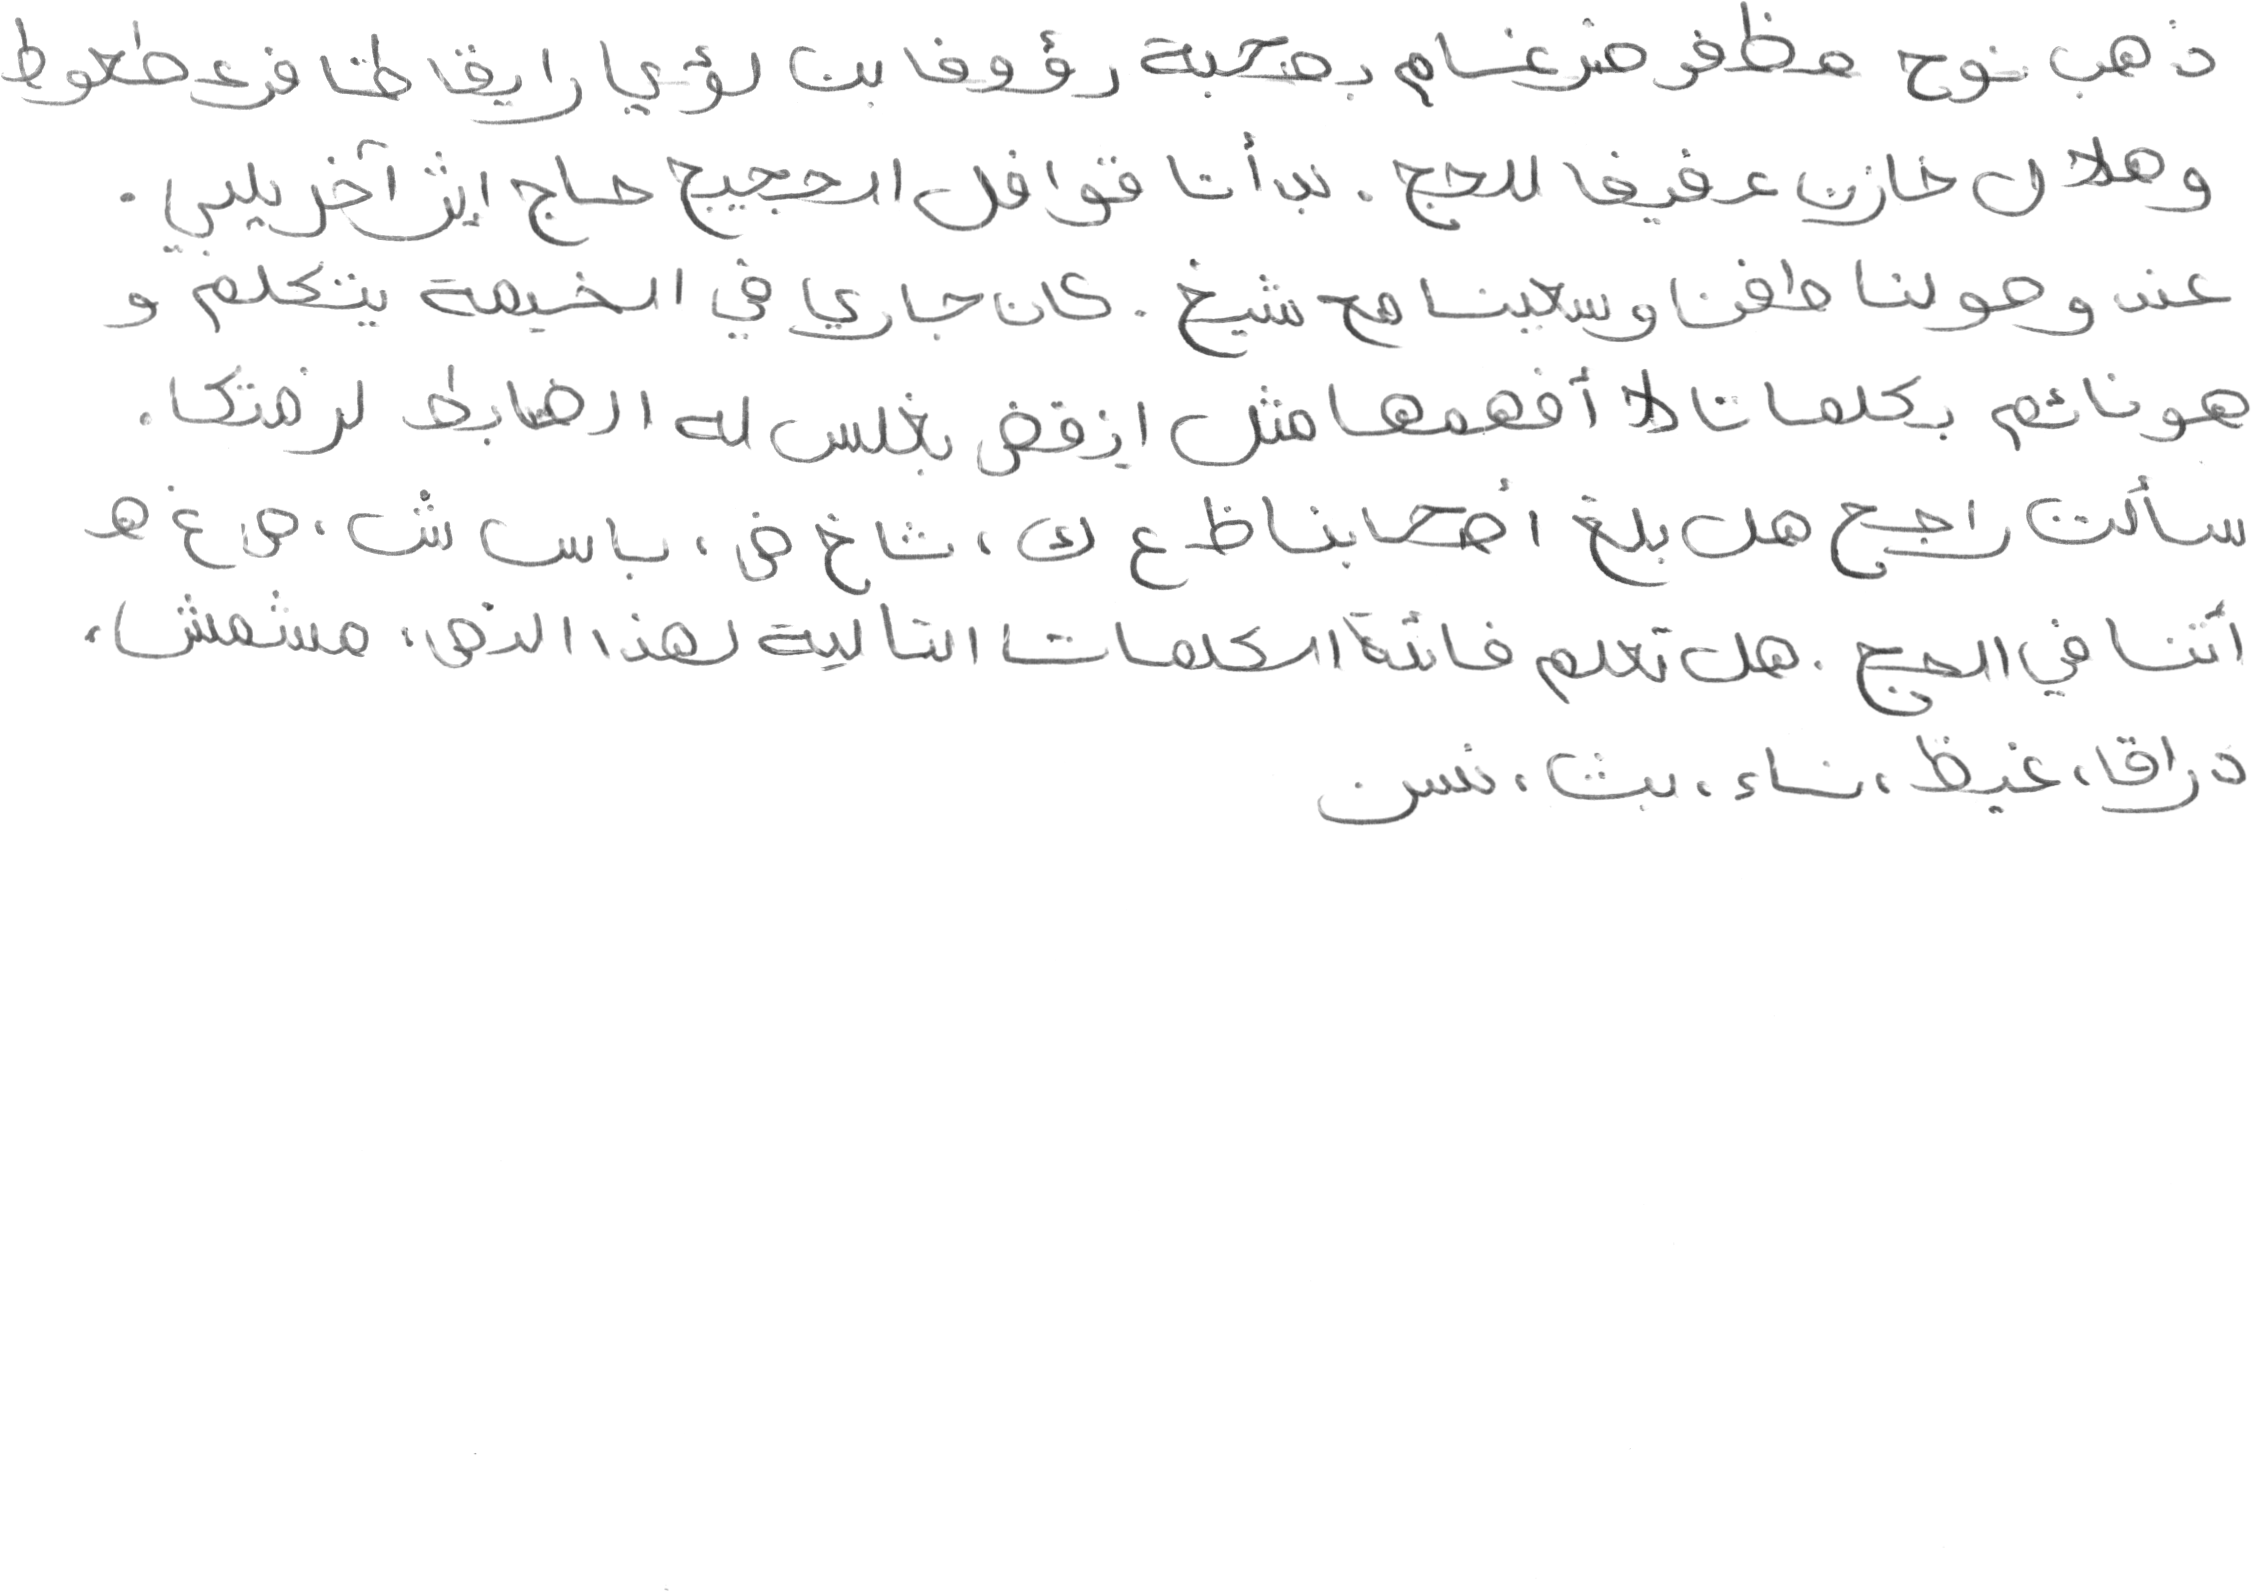 ذهب نوح مظفر ضرغام بصحبة رؤوف بن لؤي رايق ظافر عطعوط
وهلال خازن عفيف للحج. بدأت قوافل الحجيج حاج إثر آخر يلبي.
عند وصولنا طفنا وسعينا مع شيخ. كان جاري في الخيمة يتكلم و
هو نائم بكلمات لا أفهمها مثل ازقض بغلس له الضابط لزمتك.
سألت راجح هل بلغ أصحابنا ظ ع ك، شاخ ض، باس ش، ص غ هـ
أثنا في الحج. هل تعلم فائدة الكلمات التالية لهذا النص، مشمش،
دراق، غيظ، نساء، بث، نسن